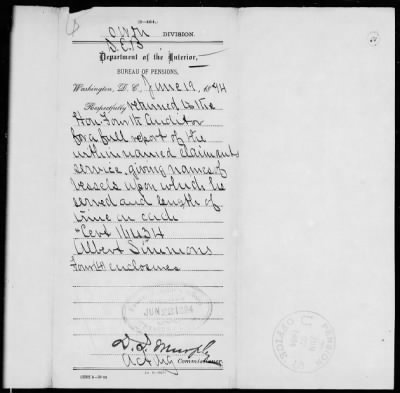 (3-464.)
DIVISION.
Department of the Interior,
BUREAU OF PENSIONS,
Washington, D. C., June 19, 1894
Respectfully returned to the
Hon Fourth Auditor
for a full report of the
within named claimant's
service, giving names of
vessels upon which he
served and length of
time on each
Cert 16434
Albert Simmons
enclosures
JUN 22 1894
D. I. Murphy
Act'g Commissioner.
PENSION OFFICE